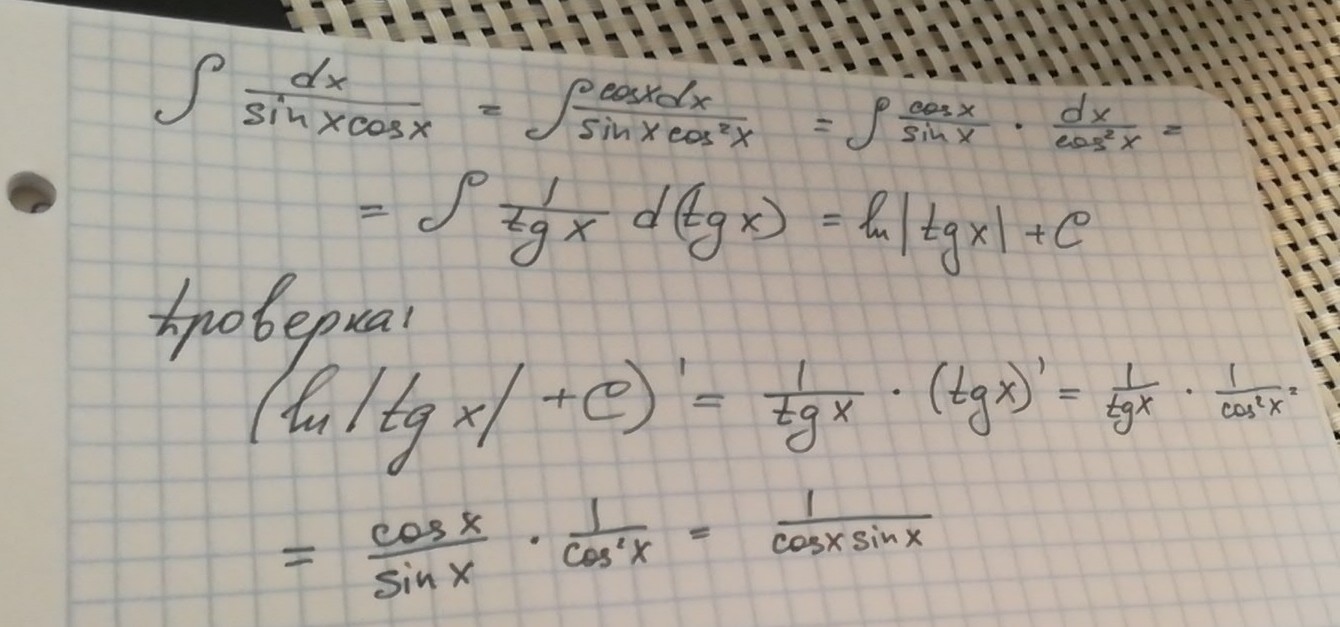 ∫ dx/(sin x cos x) = ∫ cos x dx/(sin x cos²x) = ∫ cos x/sin x · dx/cos²x =
= ∫ 1/tg x d(tg x) = ln|tg x| + C
Проверка:
(ln|tg x| + C)' = 1/tg x · (tg x)' = 1/tg x · 1/cos²x =
= cos x/sin x · 1/cos²x = 1/(cos x sin x)